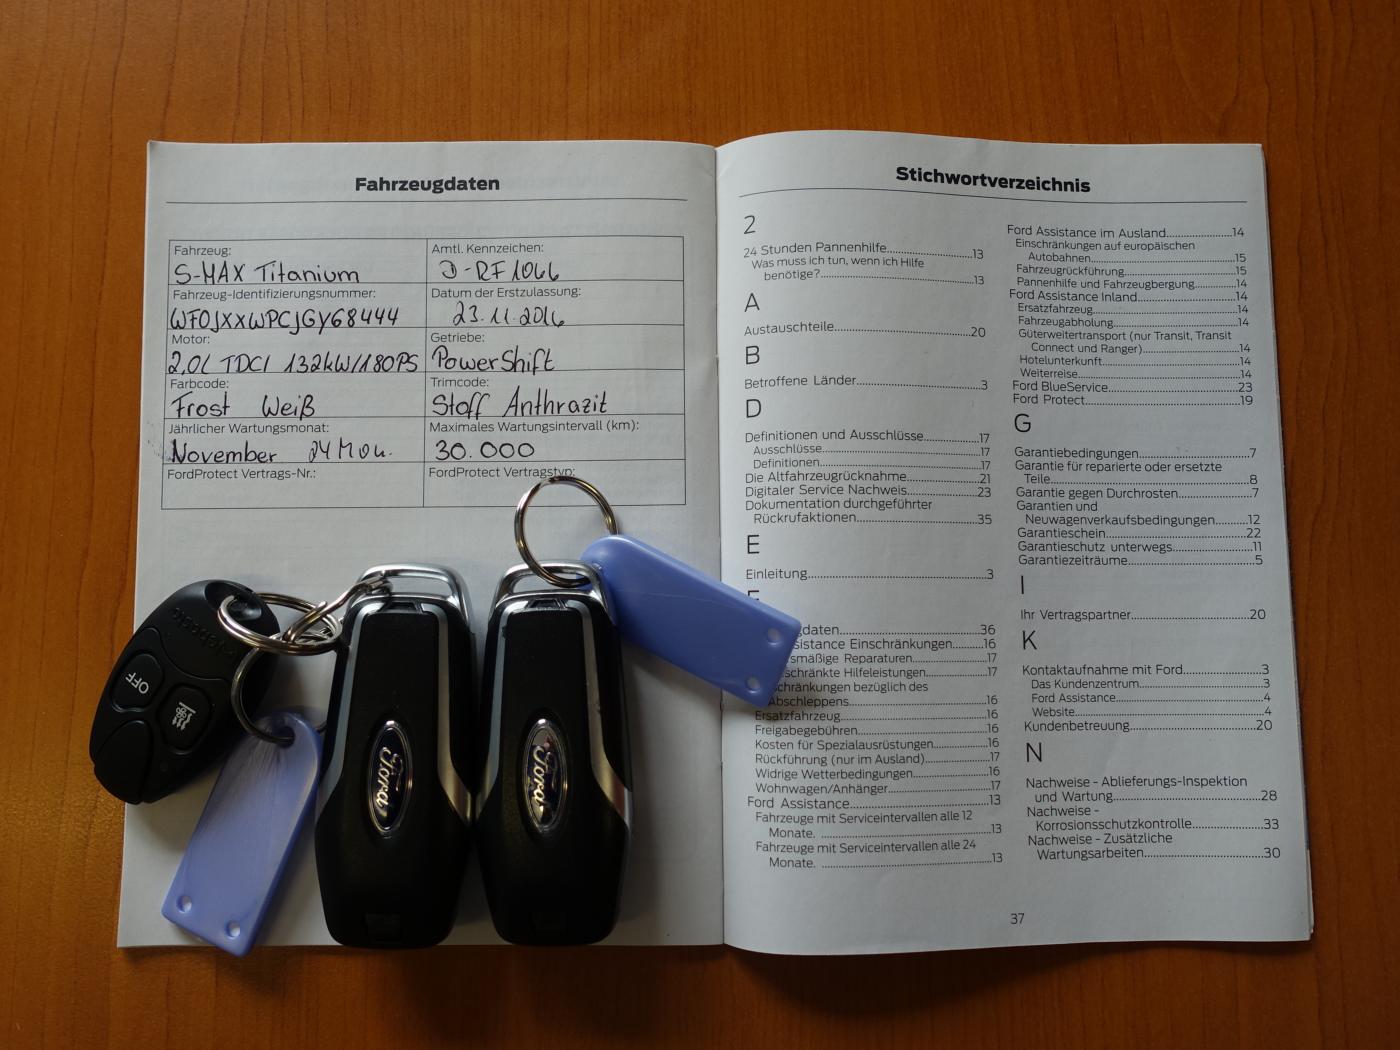 Fahrzeugdaten
Fahrzeug:
S-MAX Titanium
Amtl. Kennzeichen:
D-RF 1066
Fahrzeug-Identifizierungsnummer:
WF0JXXWPCJGY68444
Datum der Erstzulassung:
23.11.2016
Motor:
2,0l TDCI 132kW/180PS
Getriebe:
PowerShift
Farbcode:
Frost Weiß
Trimcode:
Stoff Anthrazit
Jährlicher Wartungsmonat:
November 24 Mon.
Maximales Wartungsintervall (km):
30.000
FordProtect Vertrags-Nr.:
FordProtect Vertragstyp:
OFF
Ford
Ford
Stichwortverzeichnis
2
24 Stunden Pannenhilfe 13
Was muss ich tun, wenn ich Hilfe
benötige? 13
A
Austauschteile 20
B
Betroffene Länder 3
D
Definitionen und Ausschlüsse 17
Ausschlüsse 17
Definitionen 17
Die Altfahrzeugrücknahme 21
Digitaler Service Nachweis 23
Dokumentation durchgeführter
Rückrufaktionen 35
E
Einleitung 3
gdaten 36
sistance Einschränkungen 16
smäßige Reparaturen 17
schränkte Hilfeleistungen 17
schränkungen bezüglich des
Abschleppens 16
Ersatzfahrzeug 16
Freigabegebühren 16
Kosten für Spezialausrüstungen 16
Rückführung (nur im Ausland) 17
Widrige Wetterbedingungen 16
Wohnwagen/Anhänger 17
Ford Assistance 13
Fahrzeuge mit Serviceintervallen alle 12
Monate. 13
Fahrzeuge mit Serviceintervallen alle 24
Monate. 13
Ford Assistance im Ausland 14
Einschränkungen auf europäischen
Autobahnen 15
Fahrzeugrückführung 15
Pannenhilfe und Fahrzeugbergung 14
Ford Assistance Inland 14
Ersatzfahrzeug 14
Fahrzeugabholung 14
Güterweitertransport (nur Transit, Transit
Connect und Ranger) 14
Hotelunterkunft 14
Weiterreise 14
Ford BlueService 23
Ford Protect 19
G
Garantiebedingungen 7
Garantie für reparierte oder ersetzte
Teile 8
Garantie gegen Durchrosten 7
Garantien und
Neuwagenverkaufsbedingungen 12
Garantieschein 22
Garantieschutz unterwegs 11
Garantiezeiträume 5
I
Ihr Vertragspartner 20
K
Kontaktaufnahme mit Ford 3
Das Kundenzentrum 3
Ford Assistance 4
Website 4
Kundenbetreuung 20
N
Nachweise - Ablieferungs-Inspektion
und Wartung 28
Nachweise -
Korrosionsschutzkontrolle 33
Nachweise - Zusätzliche
Wartungsarbeiten 30
37